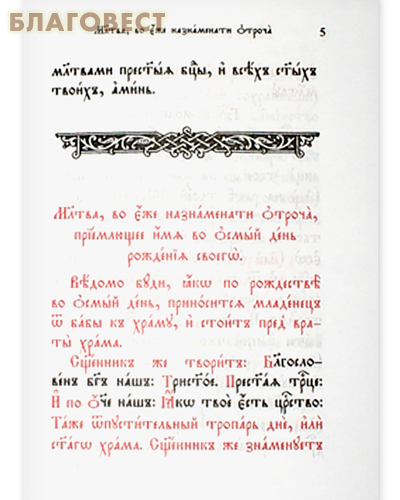 БЛАГОВЕСТ
Мл҃тва, во є҆́же назна́менати ѻ҆троча̀ 5
мл҃твами прест҃ы́ѧ бц҃ы, и҆ всѣ́хъ ст҃ы́хъ
твои́хъ, а҆ми́нь.
Мл҃тва, во є҆́же назна́менати ѻ҆троча̀,
прїе́млющее и҆́мѧ во ѻ҆смы́й де́нь
рожде́нїѧ своегѡ̀.
Вѣ́домо бꙋ́ди, ꙗ҆́кѡ по рождествѣ̀
во ѻ҆смы́й де́нь, прино́ситсѧ младе́нецъ
ѿ ба́бы къ хра́мꙋ, и҆ стои́тъ пред̾ вра-
ты̀ хра́ма.
Сщ҃е́нникъ же твори́тъ: Бл҃гослове́нъ
ве́нъ бг҃ъ на́шъ: Трист҃о́е. Прест҃а́ѧ трⷪ҇це:
И҆ по Ѻ҆́ч҃е на́шъ: Ꙗ҆́кѡ твоѐ є҆́сть црⷭ҇тво:
Та́же ѿпꙋсти́тельный тропа́рь днѐ, и҆лѝ
ст҃а́гѡ хра́ма. Сщ҃е́нникъ же зна́менꙋетъ